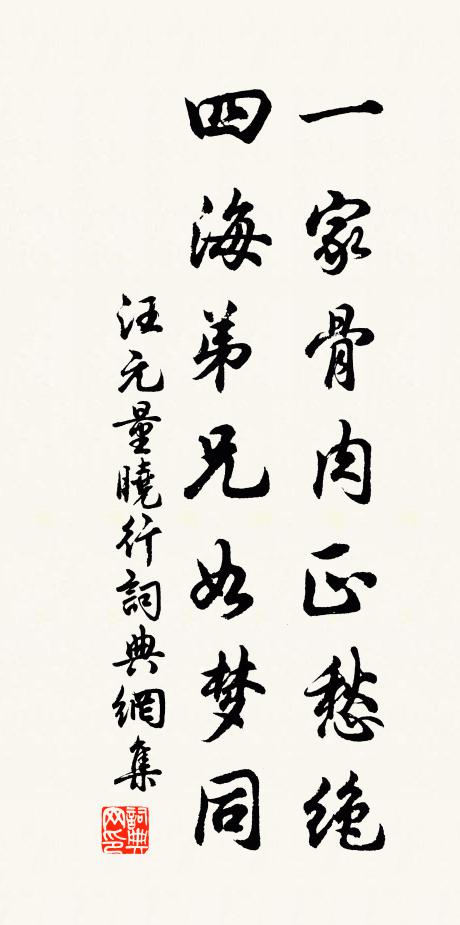 一家骨肉正愁绝
四海弟兄如梦同
汪元量曉行詞典網集
詞典網印